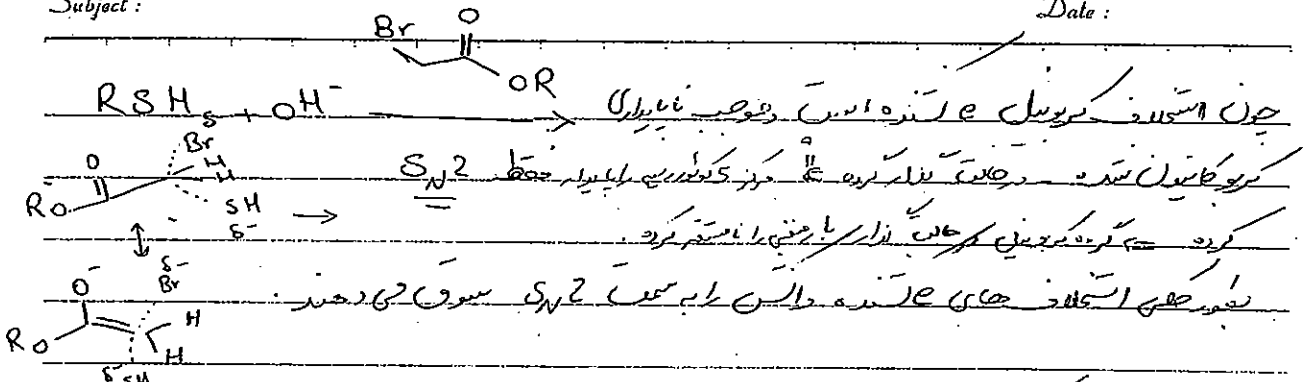 Subject : Date :
Br O
OR
RSH + OH⁻ → چون استخلاف کربونیل e کشنده است و موجب ناپایداری
کربوکاتیون شده در حالت گذار گروه مرکز را پایدار فقط SN2
کرده ⇒ گروه کربونیل در حالت گذار بار منفی را نامستقر کرده.
بطور کلی استخلاف های e کشنده واکنش را به سمت SN2 سوق می دهند.
O Br H H RO SH δ⁻
O⁻ δ⁻ Br H H RO δ⁻ SH